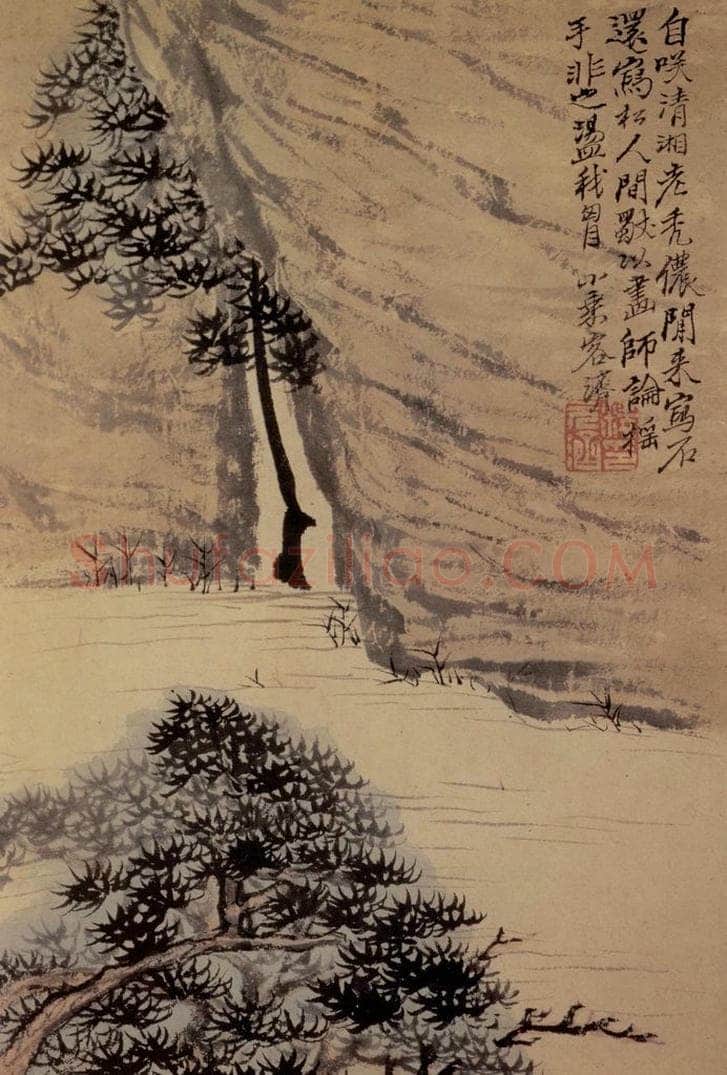 自咲清湘老禿儂閒来寫石
還寫松人間以畫師論摇
手非也盪我胷 小乗客濟
Shufaziliao.COM